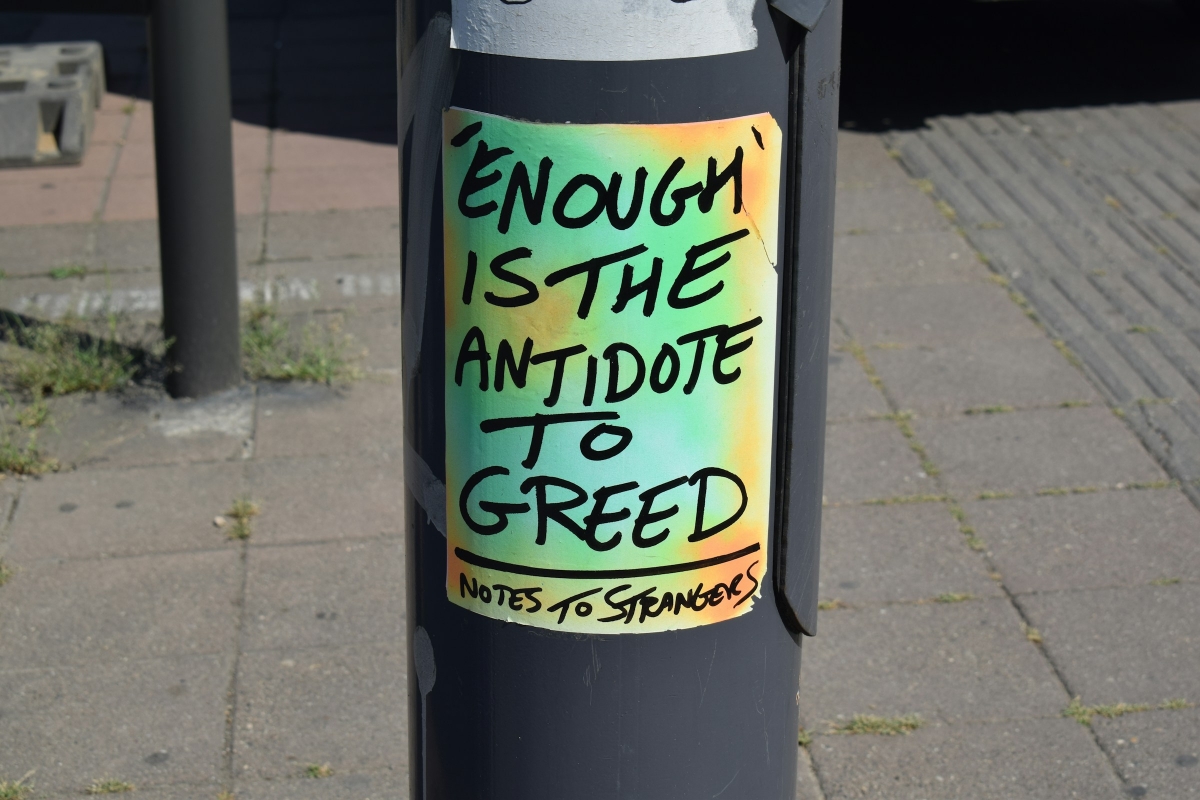 'ENOUGH'
IS THE
ANTIDOTE
TO
GREED
NOTES TO STRANGERS